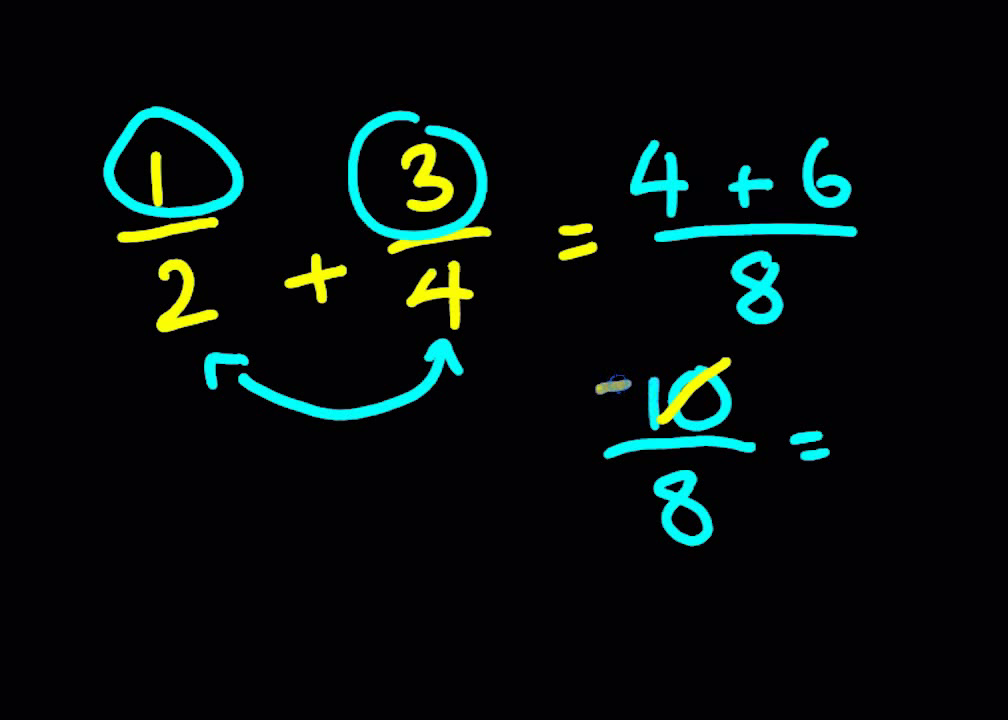 1/2 + 3/4 = (4 + 6)/8
10/8 =